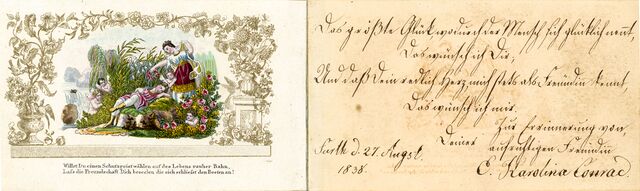 Willst Du einen Schutzgeist wählen auf des Lebens rauher Bahn,
Laſs die Freundschaft Dich beseelen die sich schlieſst den Besten an!
Das größte Glück wodurch der Mensch sich glücklich nennt,
Das wünsch ich Dir,
Und daß Dein redlich Herz mich stets als Freundin kennt,
Das wünsch ich mir.
Zur Erinnerung von
Deiner aufrichtigen Freundin
C. Karolina Conrad.
Fürth d. 27. Augst.
1838.